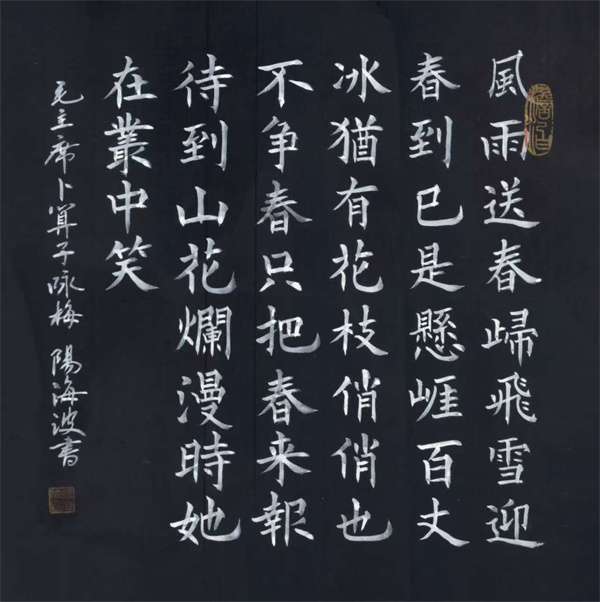 風雨送春歸飛雪迎
春到已是懸崕百丈
冰猶有花枝俏俏也
不争春只把春来報
待到山花爛漫時她
在叢中笑
毛主席卜算子咏梅 陽海波書